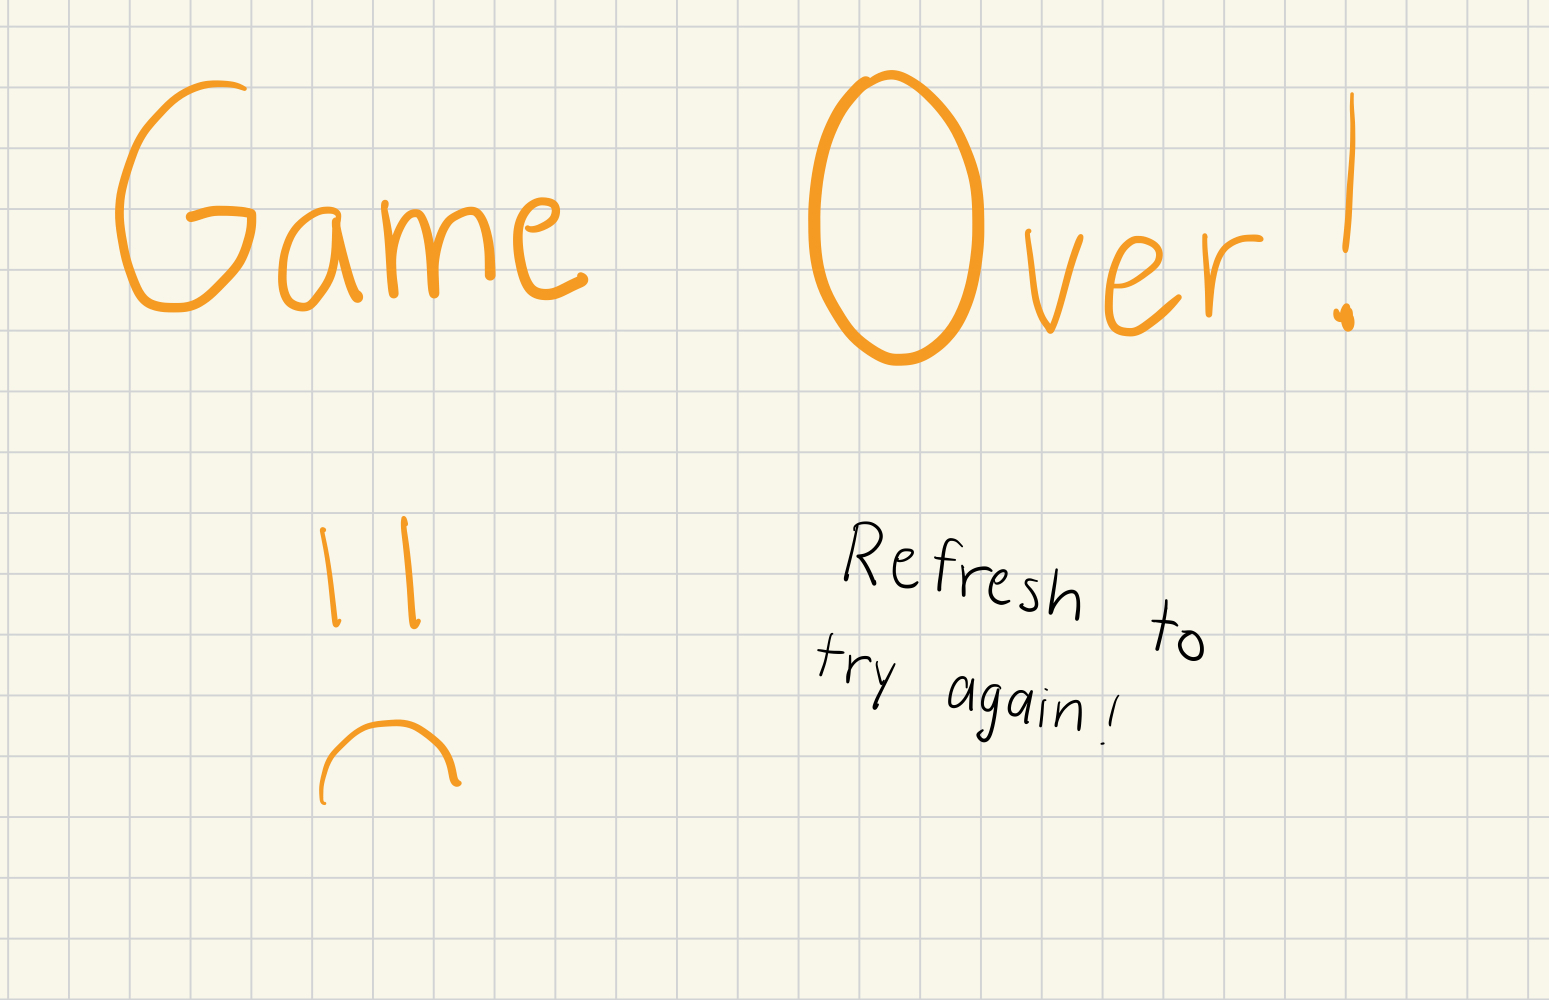 Game Over!
Refresh to
try again!